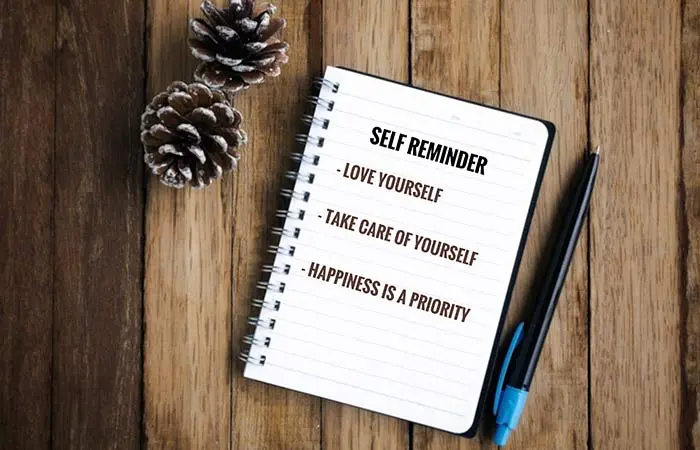 SELF REMINDER
- LOVE YOURSELF
- TAKE CARE OF YOURSELF
- HAPPINESS IS A PRIORITY